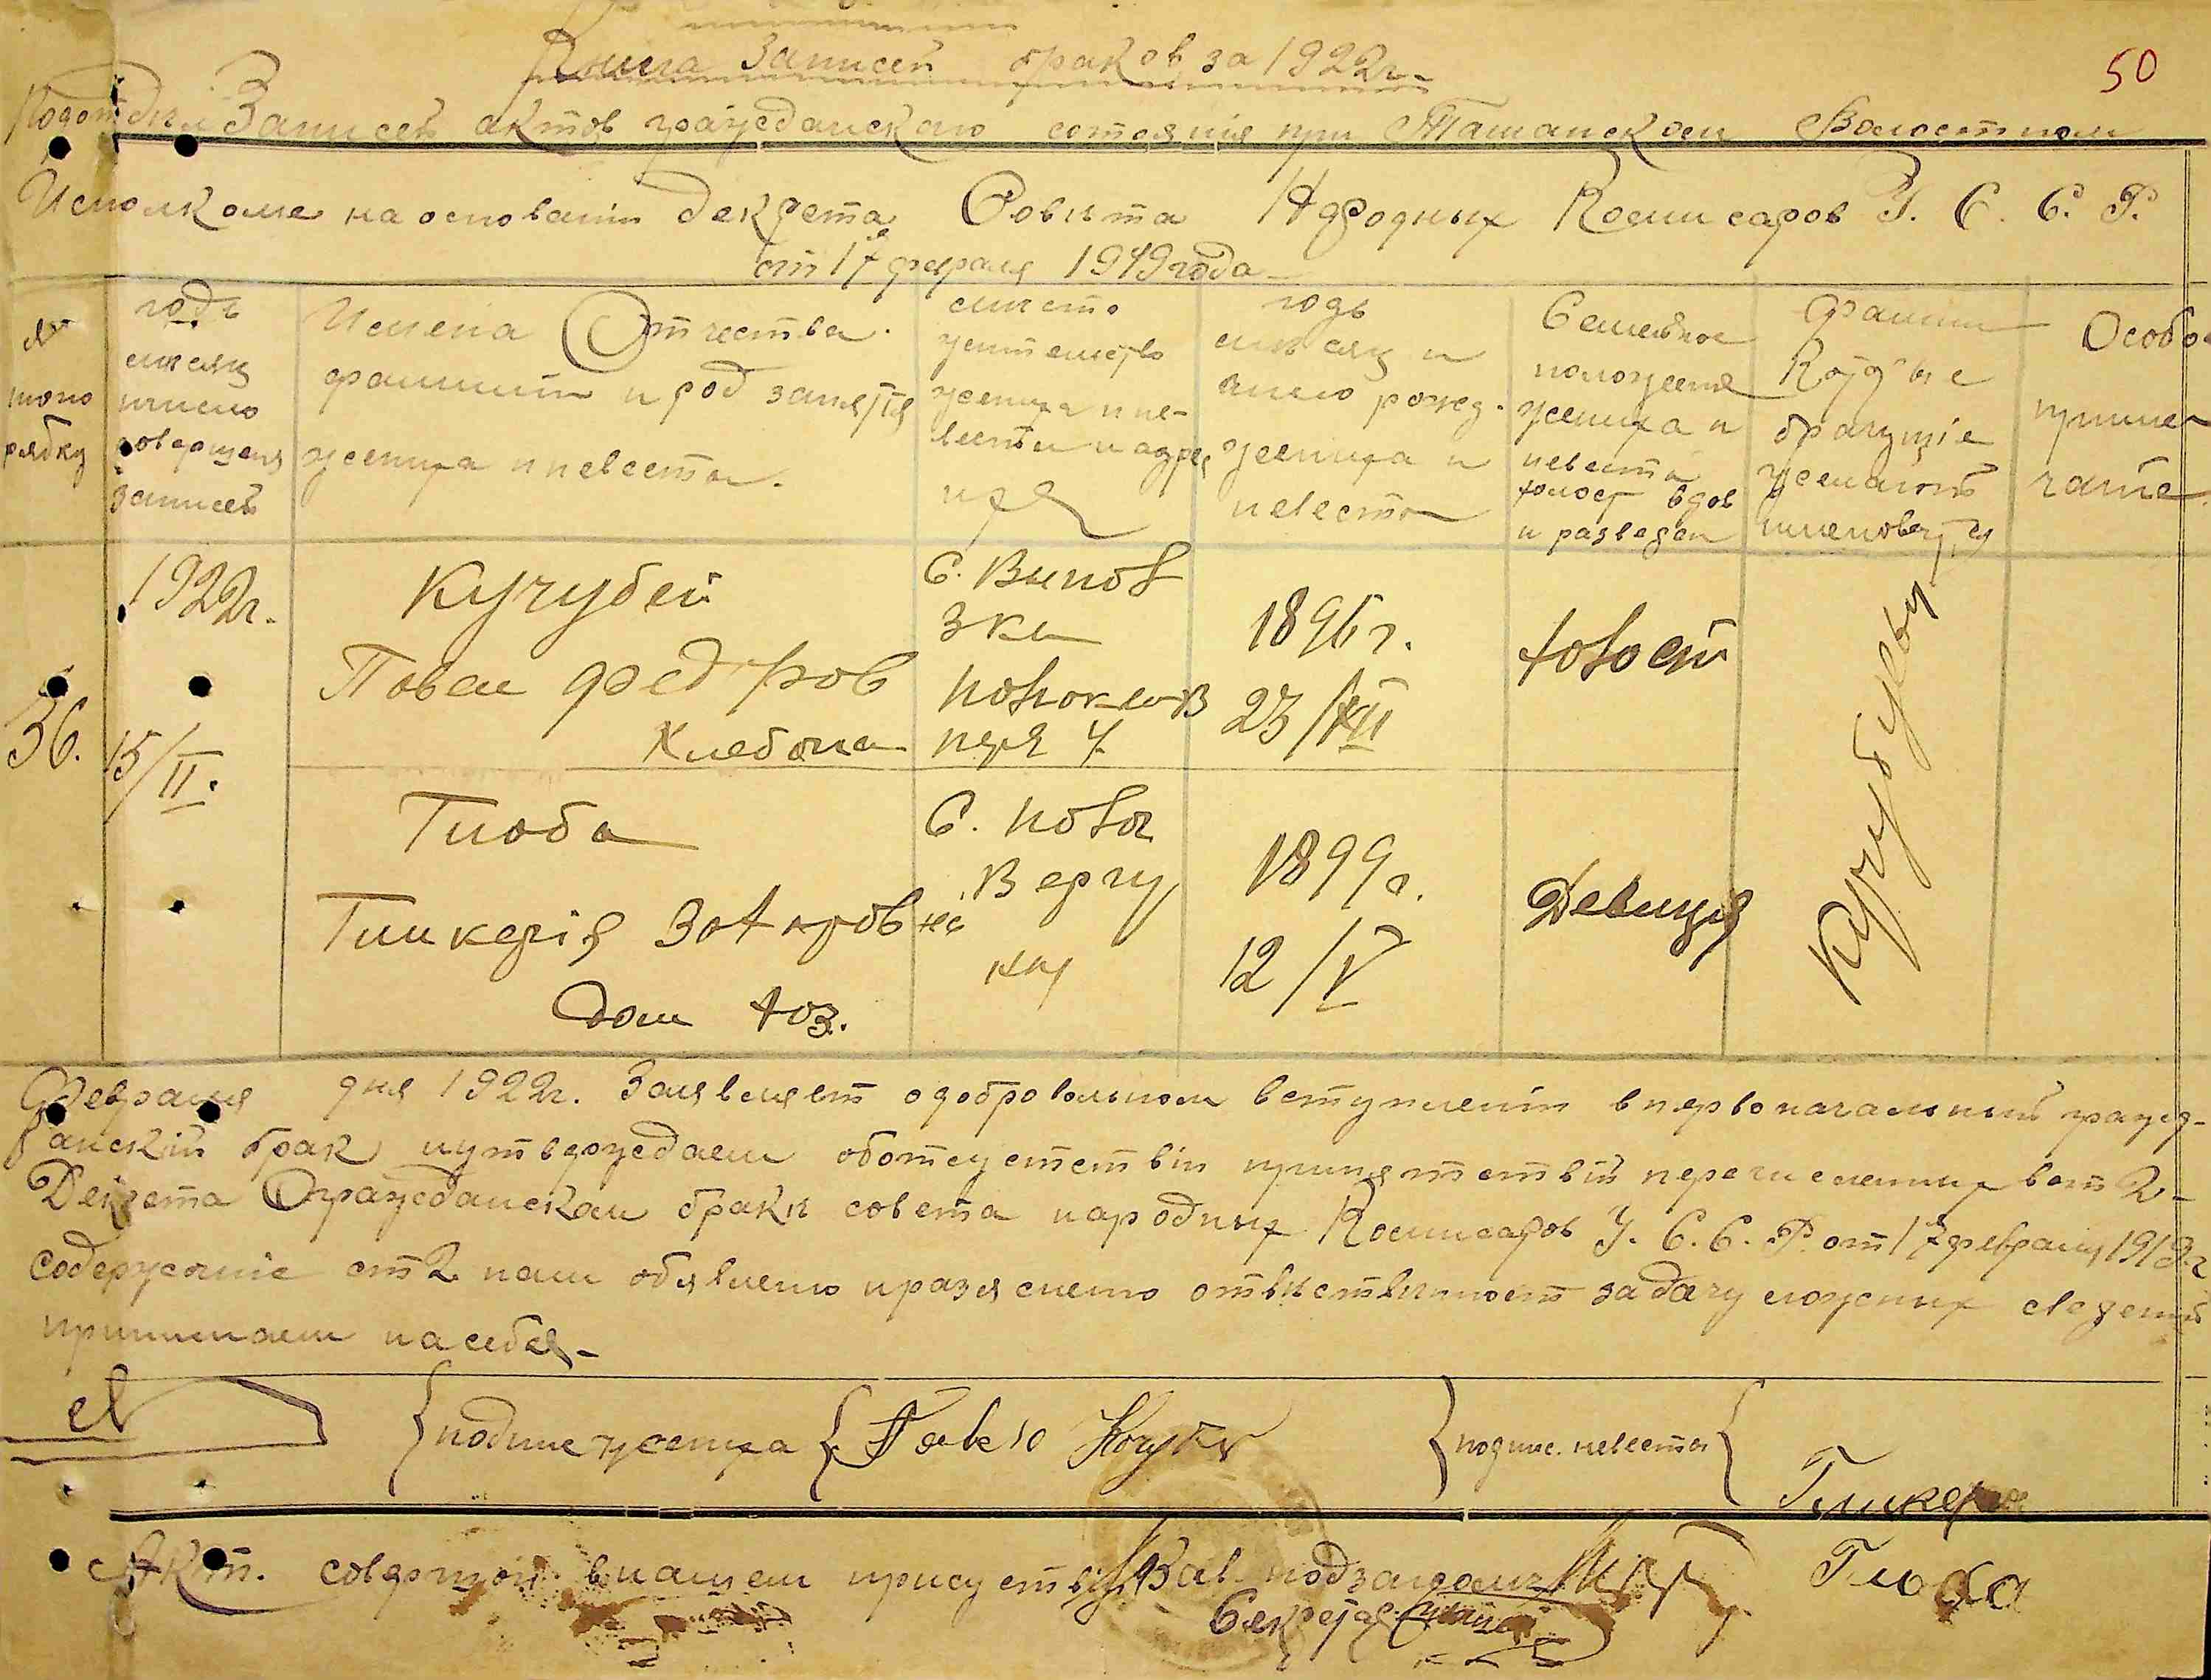 Книга Записей браков за 1922г.
50
Подотдел Записей актов гражданскаго состояния при Ташанском Волостном
Исполкоме на основании декрета Совета Народных Комисаров У. С. С. Р.
от 17 февраля 1919 года
№
по по
рядку
годъ
месяц
и число
совершения
записей
Имена Отчества
фамилии и род занятия
жениха и невесты.
место
жительство
жениха и не-
весты и адрес
их
годъ
месяц и
число рожд.
жениха и
невесты
Семейное
положение
жениха и
невесты
холост вдов
и разведен
Фамил
брачущие
желают
именоваться
Особо
приме
чание
36.
1922г.
15/II.
Кучубей
Павел Федоров
Хлебопа
1896 г.
23/XII
холост
Кучубеевы
Глоба
Гликерия Захаров на
дом хоз.
С. Нова
1899 г.
12/V
Девица
Февраля дня 1922г. Заявляем о добровольном вступлении в первоначальный гражд-
анский брак и утверждаем об отсутствии припятствий перечисленных в ст 2-
Декрета О гражданском браке совета народных Комисаров У. С. С. Р. от 17 февраля 1919 г
содержание ст 2 нам обявлено и разяснено ответственност за дачу ложных сведений
принимаем на себя.
{ подпис жениха { Павло Кочубей
} подпис. невесты {
Гликерия
Глоба
Акт. совершон в нашем присуствии Зав. подзагом
Секретар